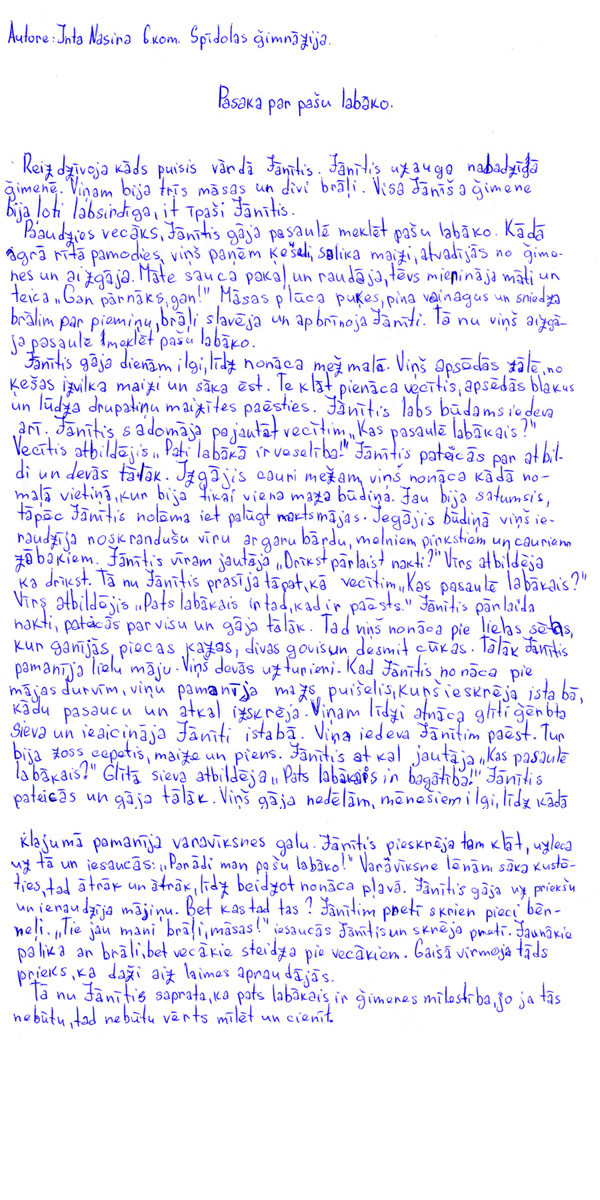 Autore: Inta Nasira 6.kom. Spīdolas ģimnāzija.
Pasaka par pašu labāko.
Reiz dzīvoja kāds puisis vārdā Jānītis. Jānītis uzauga nabadzīgā
ģimenē. Viņam bija trīs māsas un divi brāļi. Visa Jānīša ģimene
bija ļoti labsirdīga, it īpaši Jānītis.
Paaudzies vecāks, Jānītis gāja pasaulē meklēt pašu labāko. Kādā
agrā rītā pamodies, viņš paņēm ķešeli, salika maizi, atvadījās no ģime-
nes un aizgāja. Māte sauca pakaļ un raudāja, tēvs mierināja māti un
teica „Gan pārnāks, gan!" Māsas plūca puķes, pina vainagus un sniedza
brālim par piemiņu, brāļi slavēja un apbrīnoja Jānīti. Tā nu viņš aizgā-
ja pasaulē meklēt pašu labāko.
Jānītis gāja dienām ilgi, līdz nonāca mežmalā. Viņš apsēdās zālē, no
ķešas izvilka maizi un sāka ēst. Te klāt pienāca vecītis, apsēdās blakus
un lūdza drupatiņu maizītes paēsties. Jānītis labs būdams iedeva
arī. Jānītis sadomāja pajautāt vecītim „Kas pasaulē labākais?"
Vecītis atbildējis „Pati labākā ir veselība!" Jānītis pateicās par atbil-
di un devās tālāk. Izgājis cauri mežam, viņš nonāca kādā no-
maļā vietiņā, kur bija tikai viena maza būdiņa. Jau bija satumsis,
tāpēc Jānītis nolēma iet palūgt naktsmājas. Iegājis būdiņā viņš ie-
raudzīja noskrandušu vīru ar garu bārdu, melniem pirkstiem un cauriem
zābakiem. Jānītis vīram jautāja „Drīkst pārlaist nakti?" Vīrs atbildēja
ka drīkst. Tā nu Jānītis prasīja tāpat, kā vecītim „Kas pasaulē labākais?"
Vīrs atbildējis „Pats labākais ir tad, kad ir paēsts." Jānītis pārlaida
nakti, pateicās par visu un gāja tālāk. Tad viņš nonāca pie lielas sētas,
kur ganījās, piecas kazas, divas govis un desmit cūkas. Tālāk Jānītis
pamanīja lielu māju. Viņš devās uz turieni. Kad Jānītis nonāca pie
mājas durvīm, viņu pamanīja mazs puišelis, kurš ieskrēja istabā,
kādu pasaucu un atkal izskrēja. Viņam līdzi atnāca glīti ģērbta
sieva un ieaicināja Jānīti istabā. Viņa iedeva Jānītim paēst. Tur
bija zoss cepetis, maize un piens. Jānītis atkal jautāja „Kas pasaulē
labākais?" Glītā sieva atbildēja „Pats labākais ir bagātība!" Jānītis
pateicās un gāja tālāk. Viņš gāja nedēļām, mēnešiem ilgi, līdz kādā
klajumā pamanīja varavīksnes galu. Jānītis pieskrēja tam klāt, uzleca
uz tā un iesaucās: „Parādi man pašu labāko!" Varavīksne lēnām sāka kustē-
ties, tad ātrāk un ātrāk, līdz beidzot nonāca pļavā. Jānītis gāja uz priekšu
un ieraudzīja mājiņu. Bet kas tad tas? Jānītim pretī skrien pieci bēr-
neļi. „Tie jau mani brāļi, māsas!" iesaucās Jānītis un skrēja pretī. Jaunākie
palika ar brāli, bet vecākie steidza pie vecākiem. Gaisā virmoja tāds
prieks, ka daži aiz laimes apraudājās.
Tā nu Jānītis saprata, ka pats labākais ir ģimenes mīlestība, jo ja tās
nebūtu, tad nebūtu vērts mīlēt un cienīt.